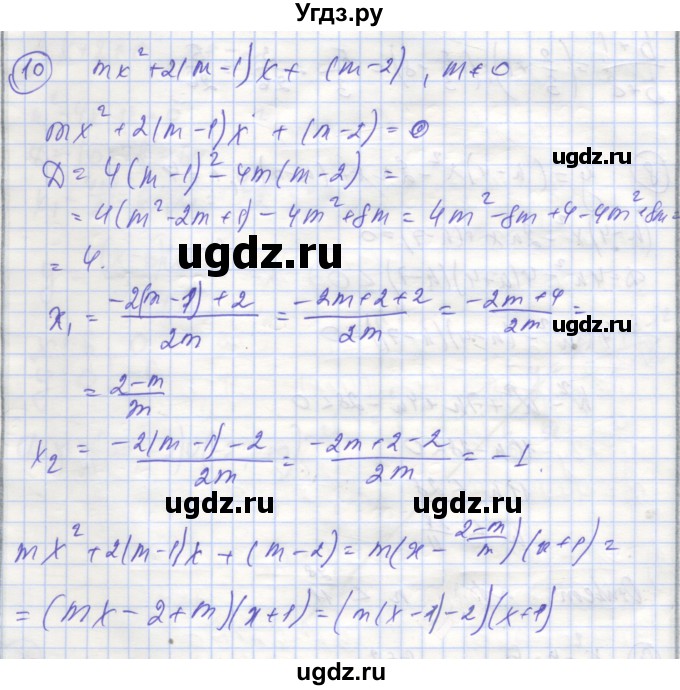 Угдз.ру
10 mx² + 2(m-1)x + (m-2), m≠0
mx² + 2(m-1)x + (m-2) = 0
Д = 4(m-1)² - 4m(m-2) =
= 4(m² - 2m + 1) - 4m² + 8m = 4m² - 8m + 4 - 4m² + 8m =
= 4.
x₁ = \frac{-2(m-1)+2}{2m} = \frac{-2m+2+2}{2m} = \frac{-2m+4}{2m} =
= \frac{2-m}{m}
x₂ = \frac{-2(m-1)-2}{2m} = \frac{-2m+2-2}{2m} = -1.
mx² + 2(m-1)x + (m-2) = m(x - \frac{2-m}{m})(x+1) =
= (mx - 2 + m)(x+1) = (m(x-1)-2)(x+1)
ugdz.ru
ugdz.ru
ugdz.ru
ugdz.ru
ugdz.ru
ugdz.ru
ugdz.ru